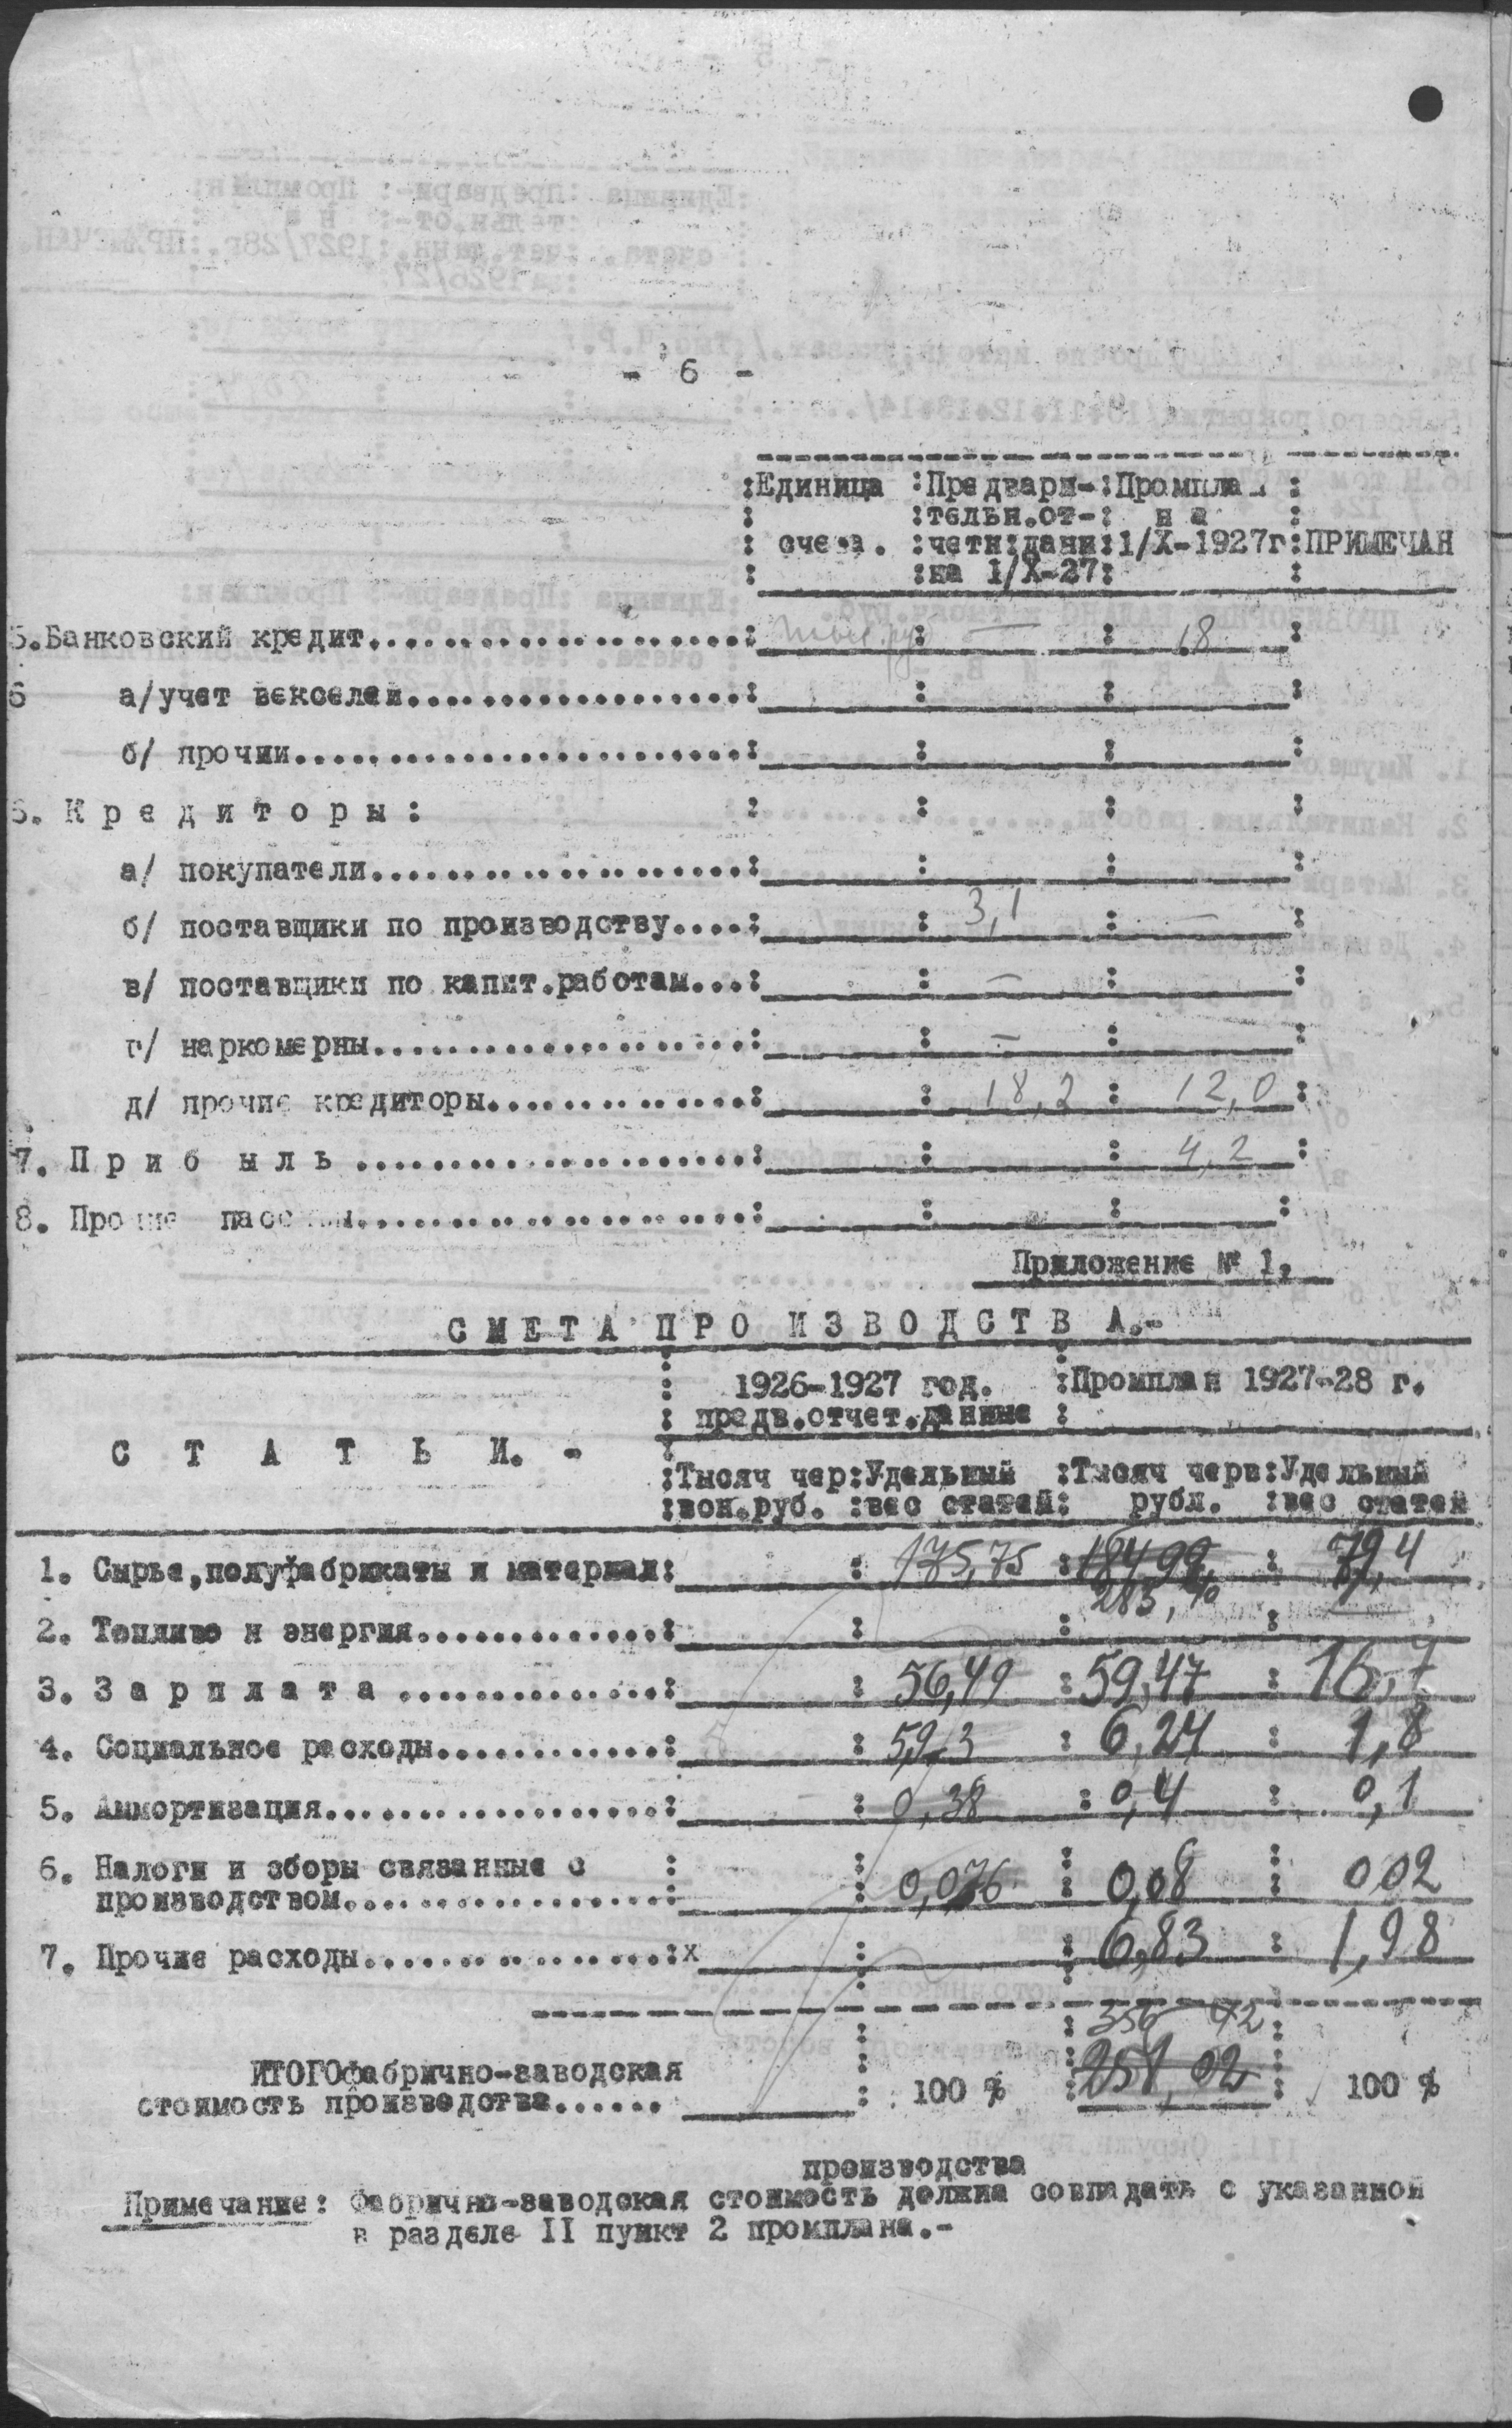 - 6 -
:Единица :Предвари-:Промплан :
: :тельн.от-: на :
: счета. :четн:данн:1/X-1927г:ПРИМЕЧАН
: :на 1/X-27: :
5.Банковский кредит....................: : — : 18 :
6 а/учет векселей..................: : : :
б/ прочии........................: : : :
6. К р е д и т о р ы : : : : :
а/ покупатели....................: : : :
б/ поставщики по производству....: : 3,1 : — :
в/ поставщики по капит.работам...: : — : :
г/ наркомерны....................: : — : :
д/ прочие кредиторы..............: : 18,2 : 12,0 :
7. П р и б ы л ь .....................: : : 4,2 :
8. Прочие пассивы.....................: : : :
Приложение № 1,
С М Е Т А П Р О И З В О Д С Т В А.-
: 1926-1927 год. :Промплан 1927-28 г.
: предв.отчет.данные :
С Т А Т Ь И. -
:Тысяч чер:Удельный :Тысяч черв:Удельный
:вон.руб. :вес статей: рубл. :вес статей
1. Сырье,полуфабрикаты и материал: : 175,75 : 184,99 : 79,4
283,
2. Топливо и энергия.............: : : :
3. З а р п л а т а ..............: : 56,49 : 59,47 : 16,7
4. Социальное расходы............: : 5,913 : 6,24 : 1,8
5. Аммортизация..................: : 0,38 : 0,4 : 0,1
6. Налоги и зборы связанные с : : : :
производством.................: : 0,076 : 0,08 : 002
7. Прочие расходы................:х : : 6,83 : 1,98
356 42
ИТОГОфабрично-заводская
258,02
стоимость производства...... : 100 % : : 100 %
производства
Примечание: Фабрично-заводская стоимость должна совпадать с указанной
в разделе II пункт 2 промплана.-